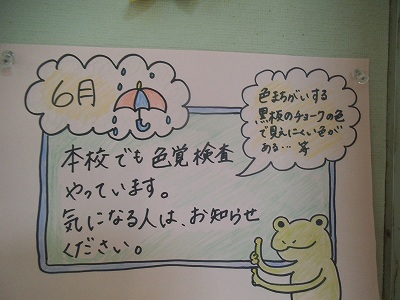 6月
色まちがいする
黒板のチョークの色
で見えにくい色が
ある… 等
本校でも色覚検査
やっています。
気になる人は、お知らせ
ください。